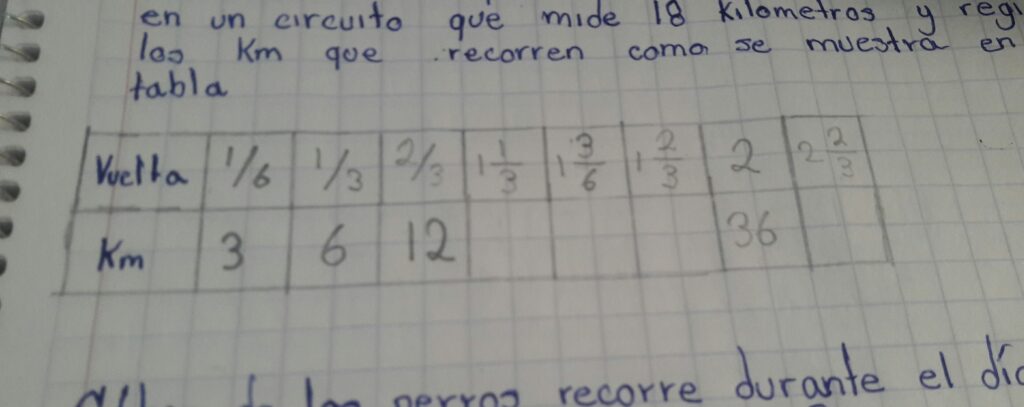 en un circuito que mide 18 Kilometros y
los Km que recorren como se muestra en
tabla
Vuelta 1/6 1/3 2/3 1 1/3 1 3/6 1 2/3 2 2 2/3
Km 3 6 12 36
perros recorre durante el